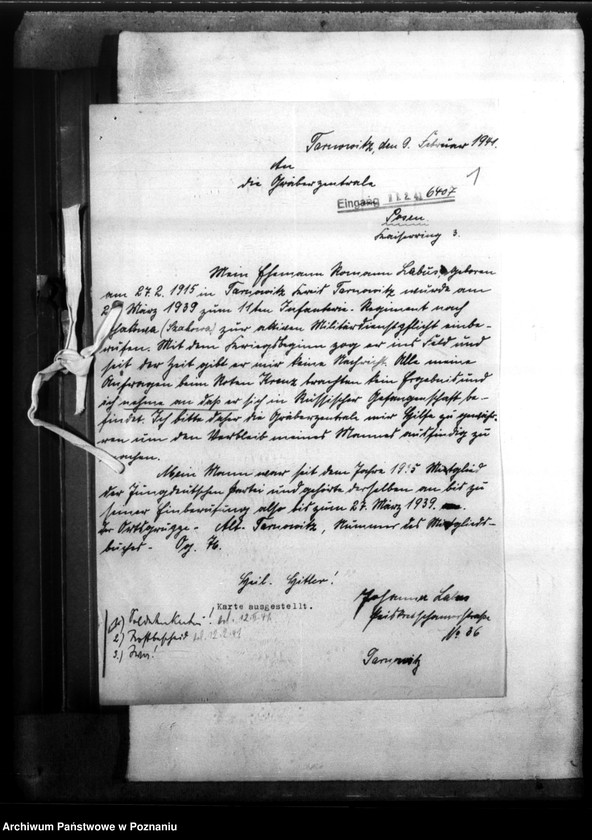 Tarnowitz, den 9. Februar 1941.
An
die Gräberzentrale
1
Eingang 11.2.41 6407
Posen.
Kaiserring 3.
Mein Ehemann Romann Labus geboren
am 27.2.1915 in Tarnowitz Kreis Tarnowitz wurde am
März 1939 zum 11ten Infanterie-Regiment nach
(Szakowa) zur aktiven Militärdienstpflicht einbe-
rufen. Mit dem Kriegsbeginn zog er ins Feld und
seit der Zeit gibt er mir keine Nachricht. Alle meine
Anfragen beim Roten Kreuz brachten kein Ergebnis und
ich nehme an daß er sich in Russischer Gefangenschaft be-
findet. Ich bitte daher die Gräberzentrale mir Hilfe zu gewäh-
ren um den Verbleib meines Mannes ausfindig zu
machen.
Mein Mann war seit dem Jahre 1935 Mitglied
der Jungdeutschen Partei und gehörte derselben an bis zu
seiner Einberufung also bis zum 27. März 1939.
der Ortsgruppe - Alt. Tarnowitz, Nummer des Mitglieds-
buches - Og. 76.
Heil. Hitler!
Karte ausgestellt.
Johanna Labus
No 36
Tarnowitz
1.)
2.)
3.)
Archiwum Państwowe w Poznaniu